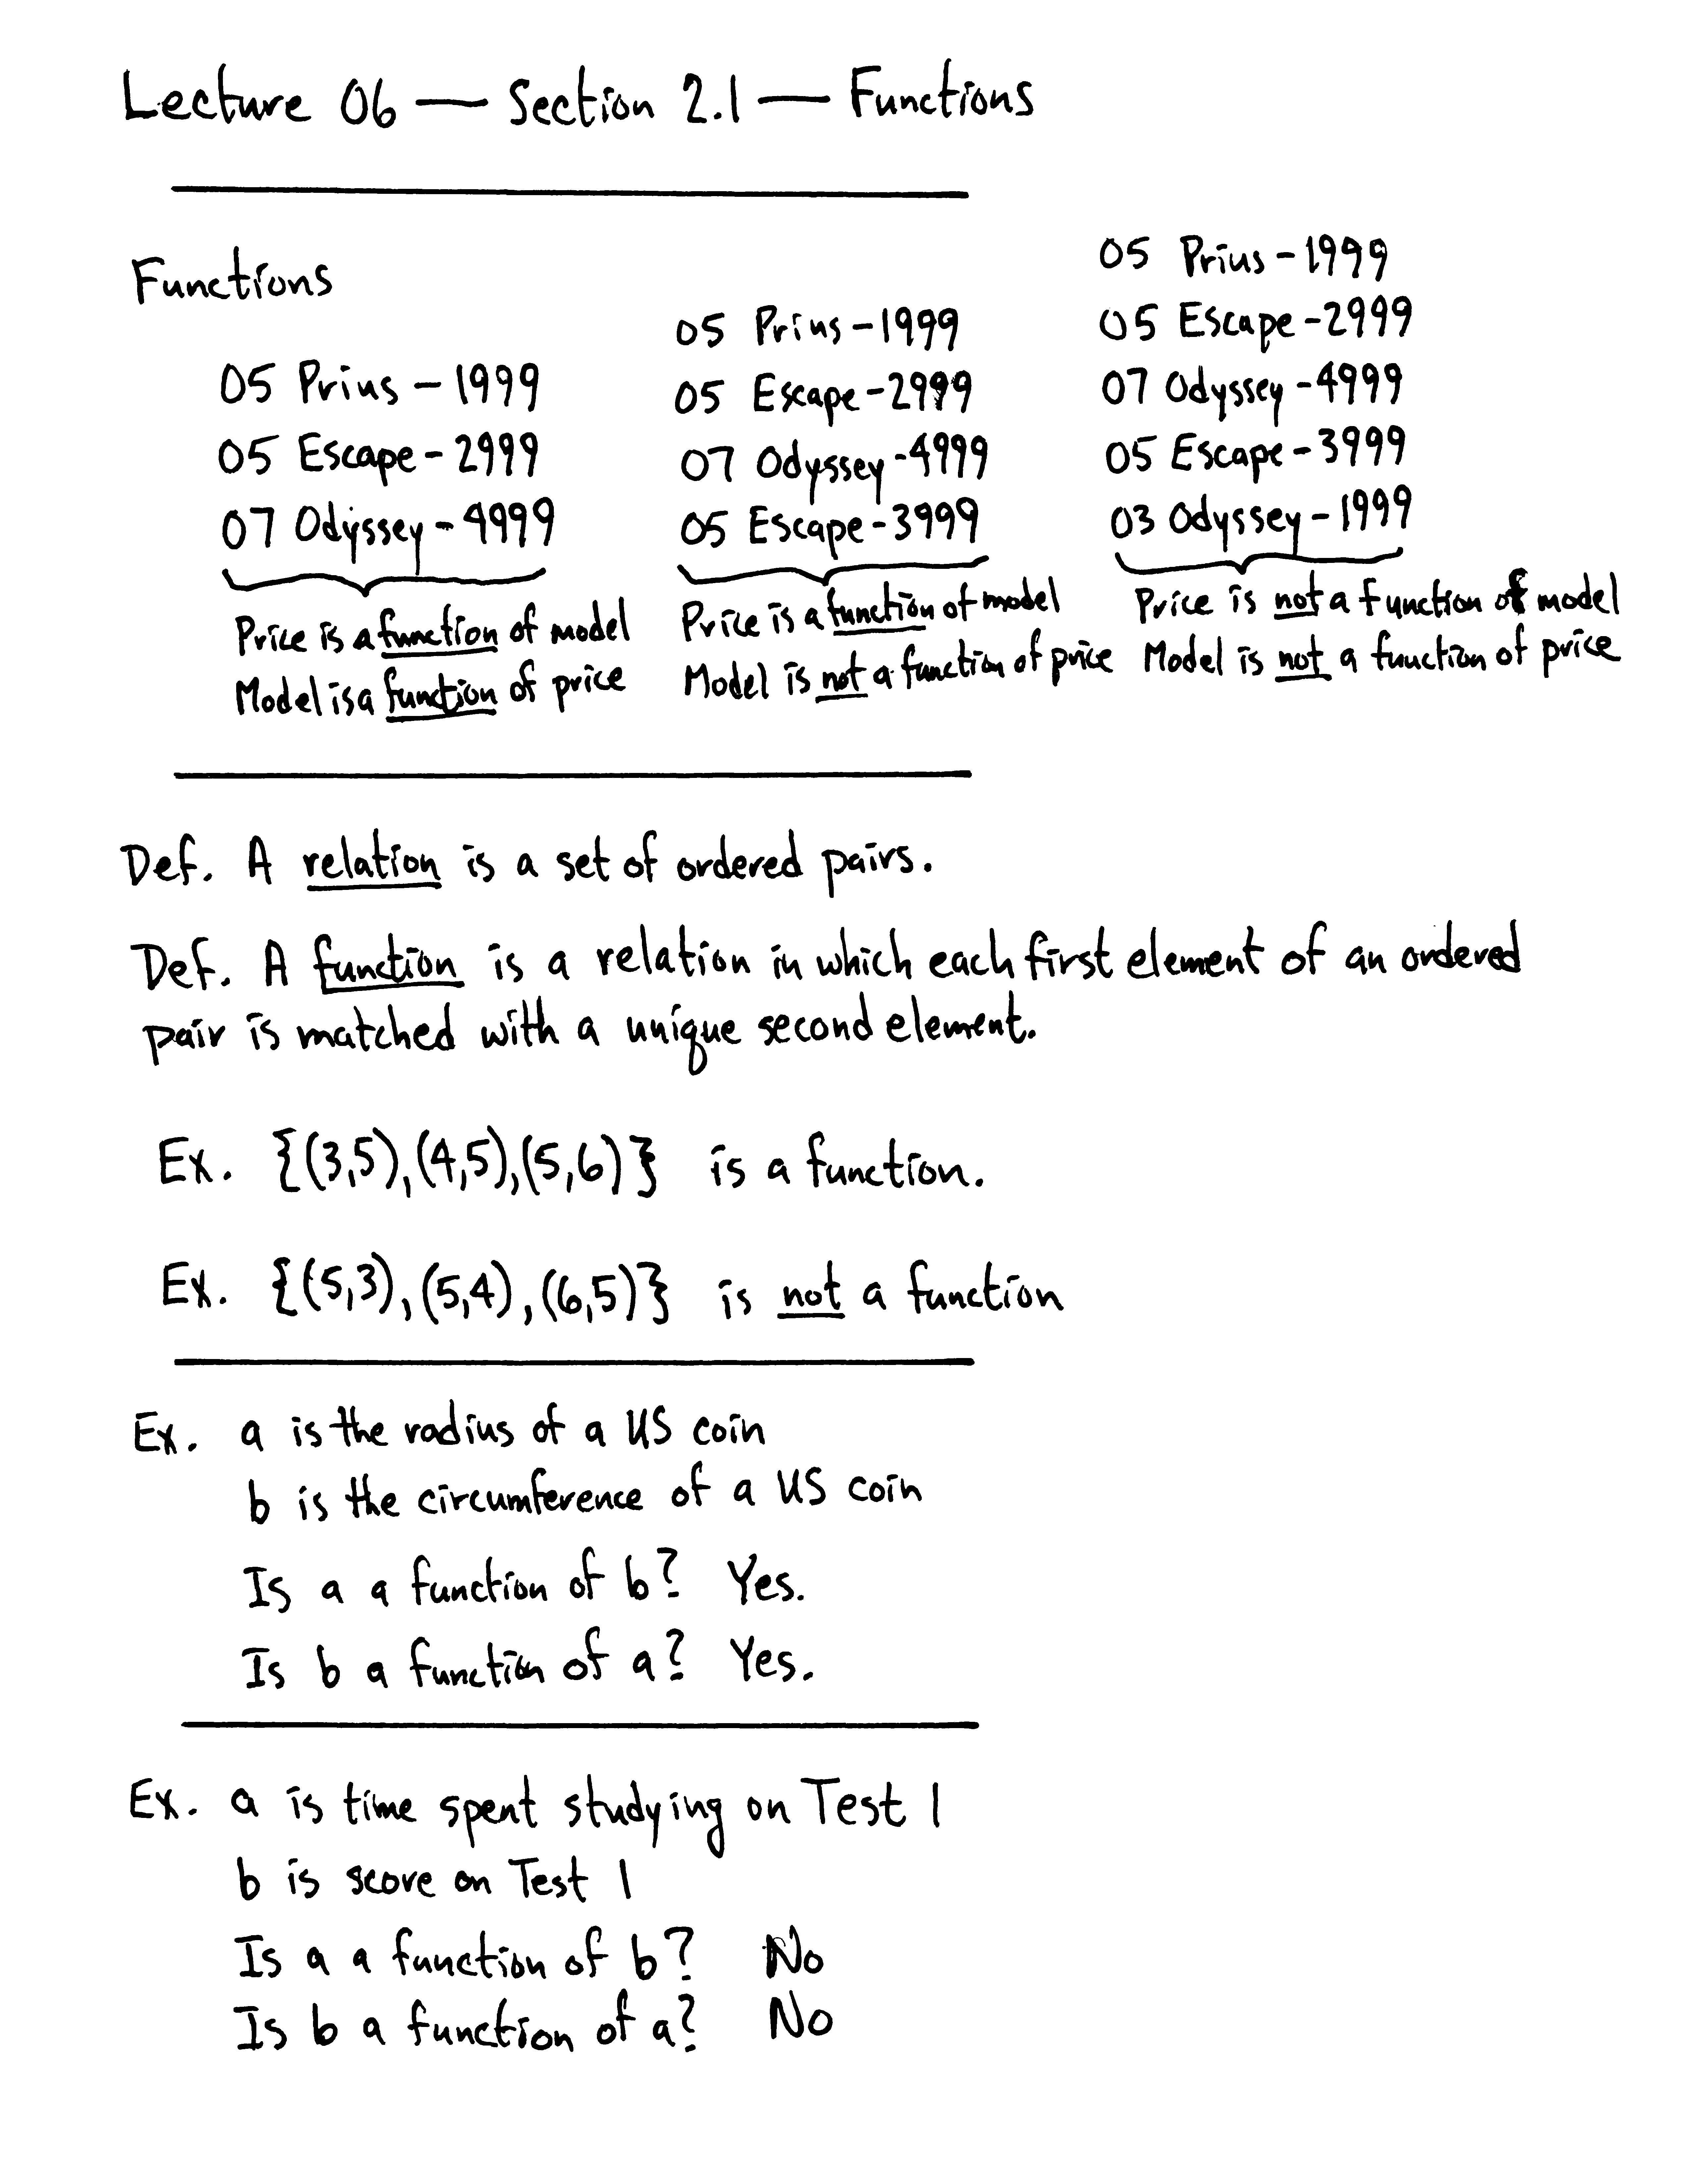 Lecture 06 — Section 2.1 — Functions
Functions
05 Prius - 1999
05 Escape - 2999
07 Odyssey - 4999
Price is a function of model
Model is a function of price
05 Prius - 1999
05 Escape - 2999
07 Odyssey - 4999
05 Escape - 3999
Price is a function of model
Model is not a function of price
05 Prius - 1999
05 Escape - 2999
07 Odyssey - 4999
05 Escape - 3999
03 Odyssey - 1999
Price is not a function of model
Model is not a function of price
Def. A relation is a set of ordered pairs.
Def. A function is a relation in which each first element of an ordered
pair is matched with a unique second element.
Ex. {(3,5),(4,5),(5,6)} is a function.
Ex. {(5,3),(5,4),(6,5)} is not a function
Ex. a is the radius of a US coin
b is the circumference of a US coin
Is a a function of b? Yes.
Is b a function of a? Yes.
Ex. a is time spent studying on Test 1
b is score on Test 1
Is a a function of b? No
Is b a function of a? No